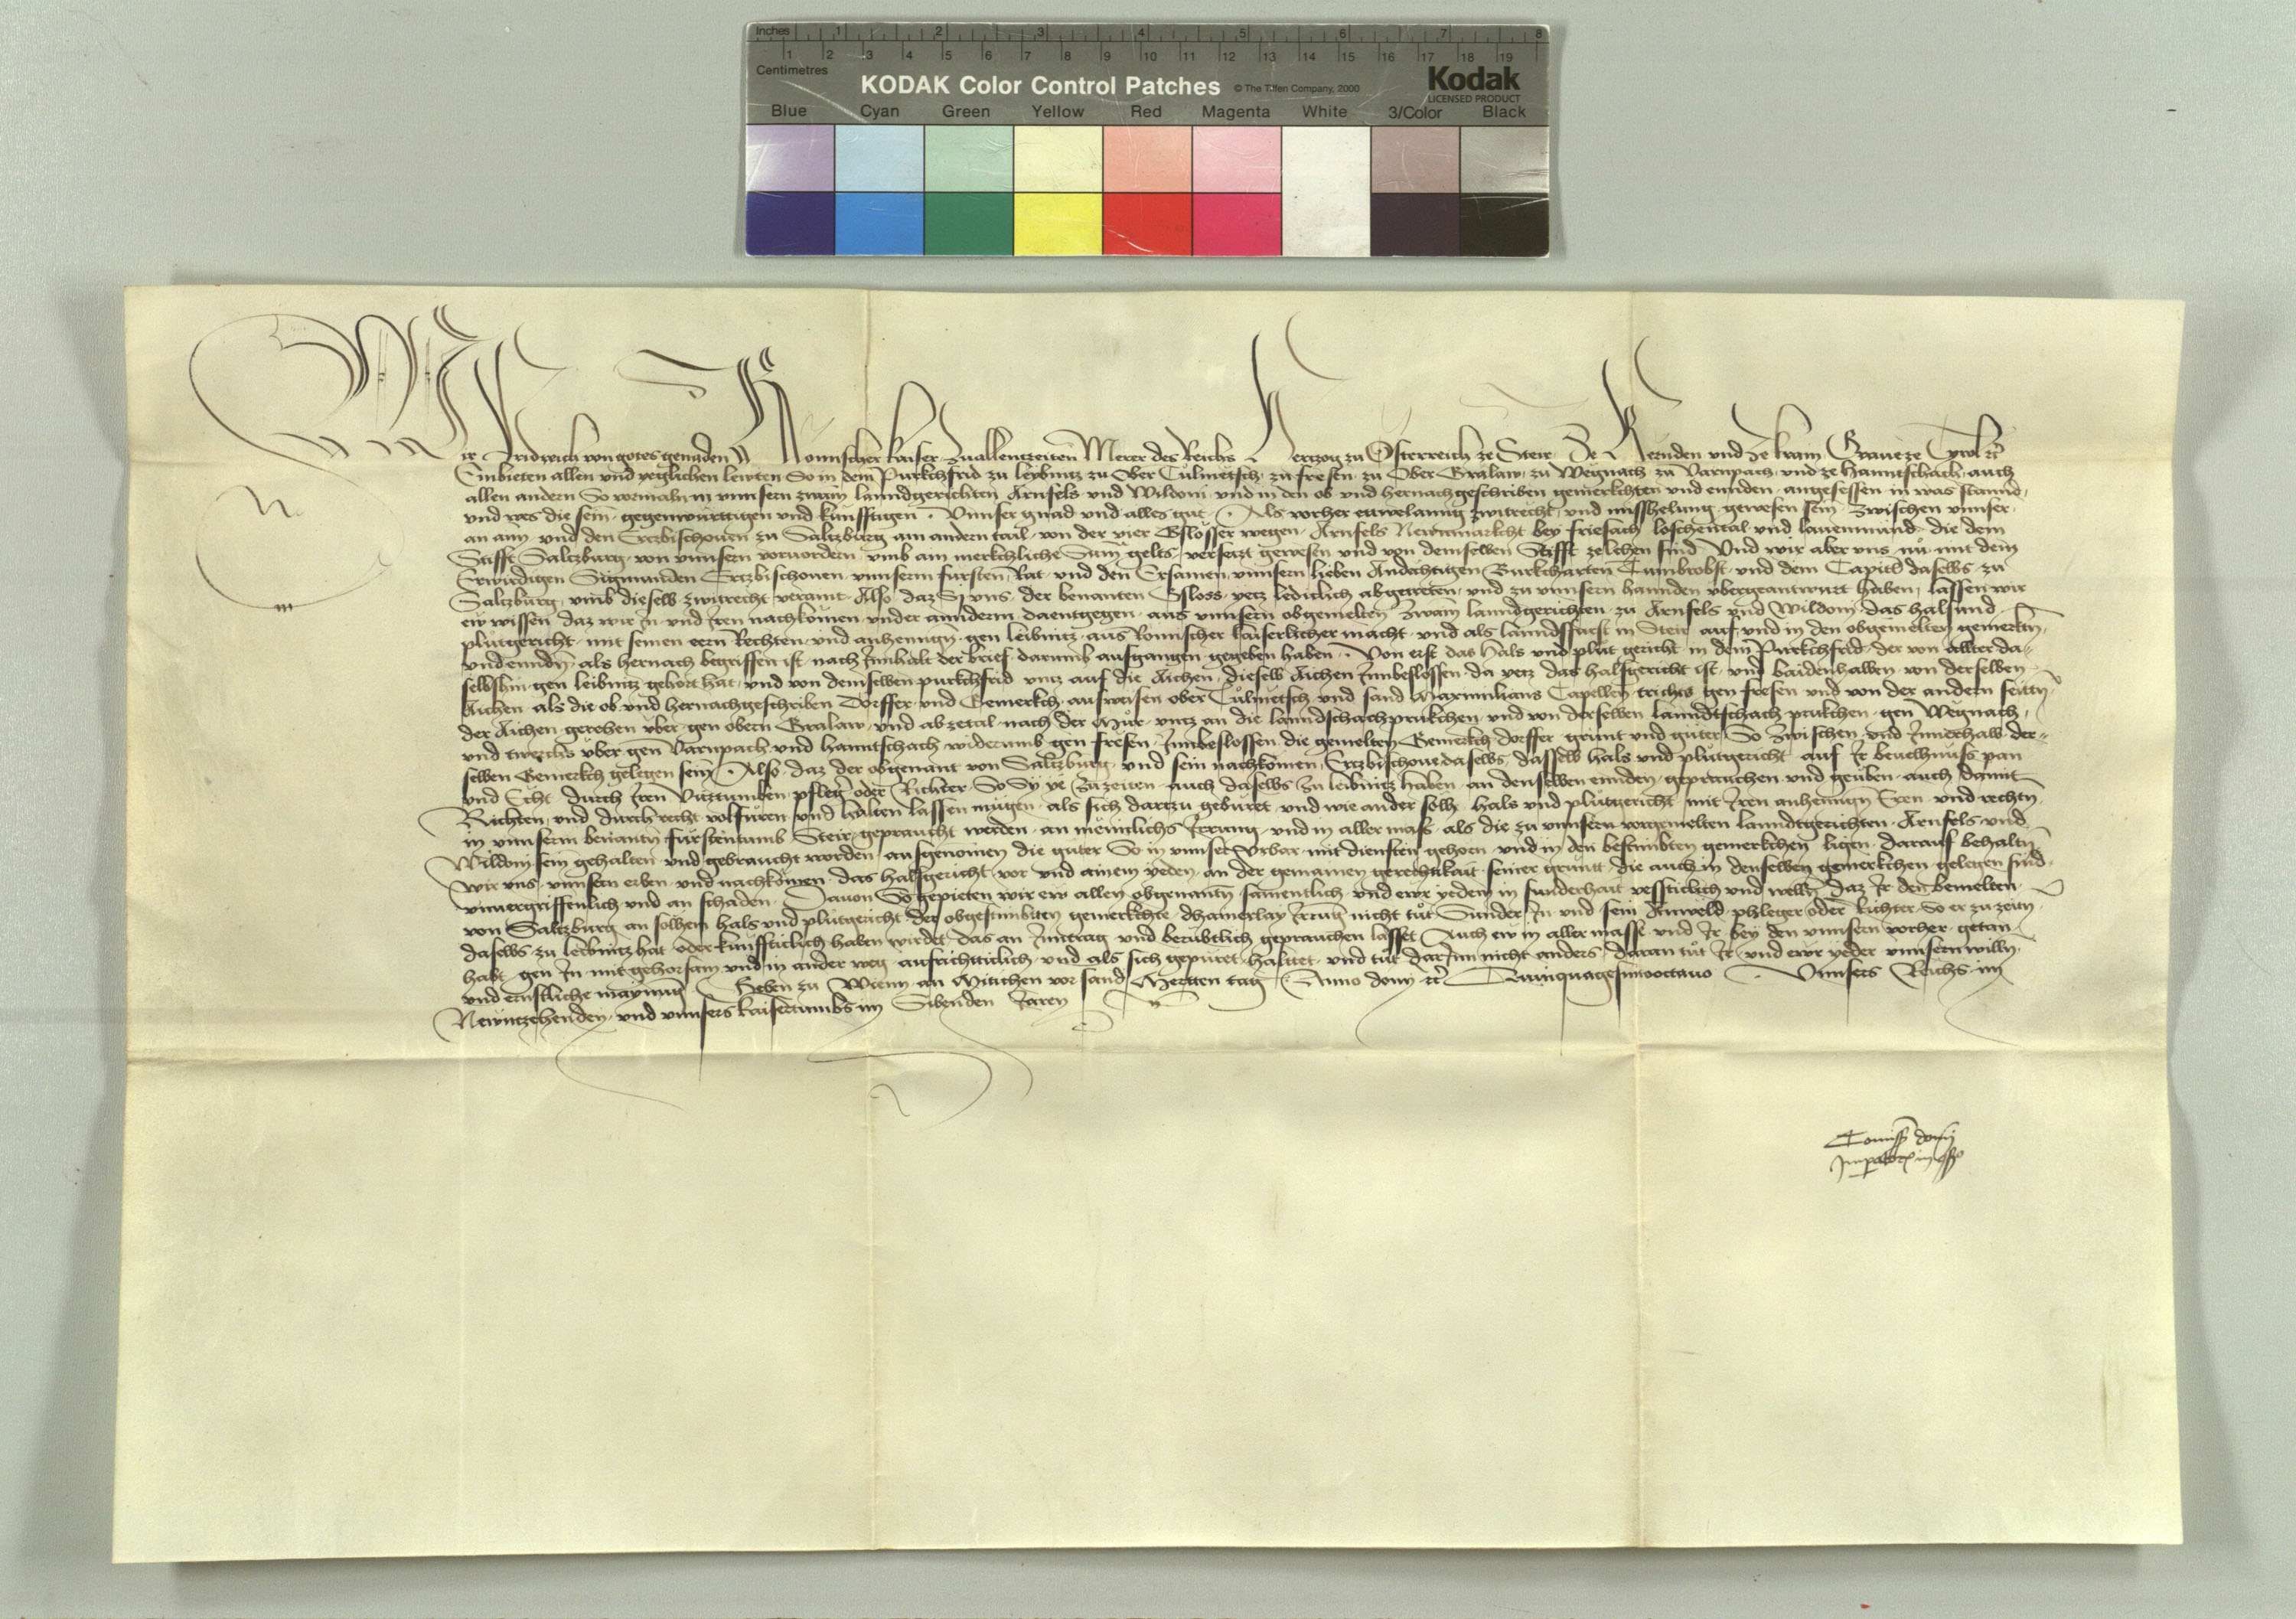 Inches 1 2 3 4 5 6 7 8
1 2 3 4 5 6 7 8 9 10 11 12 13 14 15 16 17 18 19
Centimetres
KODAK Color Control Patches © The Tiffen Company, 2000 Kodak
LICENSED PRODUCT
Blue Cyan Green Yellow Red Magenta White 3/Color Black
Wir Fridreich von gotes genaden Romischer kaiser zuallenczeiten Merer des Reichs Herczog zu Österreich ze Steir ze Kernden und ze krain Graue ze Tyrol etc
Embieten allen und yeglichen lewten So in dem Purkchfrid zu leybnitz zu Ober Culmetsch zu fresen zu Ober Gralaw zu Wegnach zu Varnpach und ze hanntschach auch
allen andern So in vnnsern zwain lanndgerichten Arnfels vnd Wildoni vnd in den ob vnd hernachgeschriben gemerkchten vnd ennden angesessen in was stannd
vnd wes die sein gegenwurttigen vnd kunfftigen Vnnser gnad vnd alles gut Als vorher zwitrecht vnd misshelung gewesen sein zwischen vnnser
an aim vnd den Erczbischouen zu Salczburg am andern tail von der vier Gslösser wegen Arnfels Newnmarkcht bey friesach loschental vnd lauenmund die dem
Stifft Salczburg von vnnsern voruordern vmb ain merkchliche Sum gelts versazt gewesen vnd von demselben Stifft ze lehen sind Vnd wir aber vns nu mit dem
Erwirdigen Sigmunden Erczbischouen vnnserm fursten Rat vnd den Ersamen vnnsern lieben Andechtigen Burkcharten Tumbrobst vnd dem Capitl daselbs zu
Salczburg vmb dieselb zwitrecht veraint Also daz Si vns der benanten Gsloss yecz lediclich abgetreten vnd zu vnnsern hannden vbergeantwurt haben lassen wir
ew wissen daz wir In vnd Iren nachkomen vnder anderm daentgegen aus vnnsern obgemelten zwain lanndgerichten zu Arnfels vnd Wildoni das hals und
plutgericht mit seinen eern Rechten vnd anhenngen gen leibnitz aus Romischer kaiserlicher macht vnd als lanndsfurst in Steir auf vnd in den obgemelten gemerkten
vnd ennden als hernach begriffen ist nach Innhalt der brief darumb ausgangen gegeben haben Von erst das hals vnd plut gericht in dem Purkchfrid der von allter da
selbshin gen leibnitz gehört hat vnd von demselben purkchfrid vncz auf die Aichen dieselb Aichen Innbeslossen da yecz das halsgericht ist vnd baidenhalben von derselben
Aichen als die ob vnd hernachgeschriben Dorffer vnd Gemerkch aufweisen ober Culmetsch vnd sand Maximilians Capellen gen fresen vnd von der andern seitten
der Aichen über gen obern Gralaw vnd ab zetal nach der Mur vncz an die lanndschachprukchen vnd von derselben lanndtschach prukchen gen Wegnach
vnd twerchs über gen Varnpach vnd hanntschach widerumb gen fresen Innbeslossen die gemelten Gemerkch dorffer grunt vnd guter So zwischen vnd Innerhalb der
selben Gemerkch gelegen sein Also daz der obgenant von Salczburg vnd sein nachkomen Erczbischoue daselbs dasselb hals vnd plutgericht auf Ir beuelhnuss pan
vnd Echt durch Iren Vicztumben pfleger oder Richter So Sy ye zuzeiten auch daselbs zu leibnitz haben an denselben ennden geprauchen vnd geuben auch damit
Richten vnd durch recht volfüren vnd halten lassen mugen als sich darczu geburet vnd wie ander solh hals vnd plutgericht mit Iren anhenngen Eren vnd rechten
in vnnserm benanten fürstentumb Steir gepraucht werden an menniclichs Irrung vnd in aller mass als die zu vnnsern vorgemelten lanndtgerichten Arnfels vnd
Wildoni sein gehalten vnd gebraucht worden ausgenomen die guter So in vnnser Vrbar mit diensten gehoren vnd in den bestimbten gemerkchen ligen Darauf behalten
wir vns vnnsern erben vnd nachkomen das halsgericht vor vnd ainem yeden an der gemainen gerechtikait seiner grunt die auch in denselben gemerkchen gelegen sind
vnuergriffenlich vnd an schaden Dauon So gepieten wir ew allen obgenanten samentlich vnd ewr yedem in sunderhait vesstiklich vnd wellen daz Ir den bemelten
von Salczburg an solhem hals vnd plutgericht der obgestimbten gemerkcht dhainerlay Irrung nicht tut Sunder In vnd sein Anweld phleger oder Richter So er zuzeiten
daselbs zu leibnitz hat oder kunfftiklich haben wirdet das an Inntrag vnd geprauchen lasset Auch ew in aller masse vnd Ir bey den vnnsern vorher getan
habt gen In mit gehorsam vnd in ander weg aufrichttiklich vnd als sich gepuret halttet vnd tut darInn nicht anders daran tut Ir vnd ewr yeder vnnsern willen
vnd ernstliche maynung Geben zu Wienn an Mittichen vor sand Merten tag Anno domini etc Quinquagesimooctauo Vnnsers Reichs im
Newnczehenden vnd vnnsers kaisertumbs im Sibenden Jaren
Comissio domini
Imperatoris in consilio